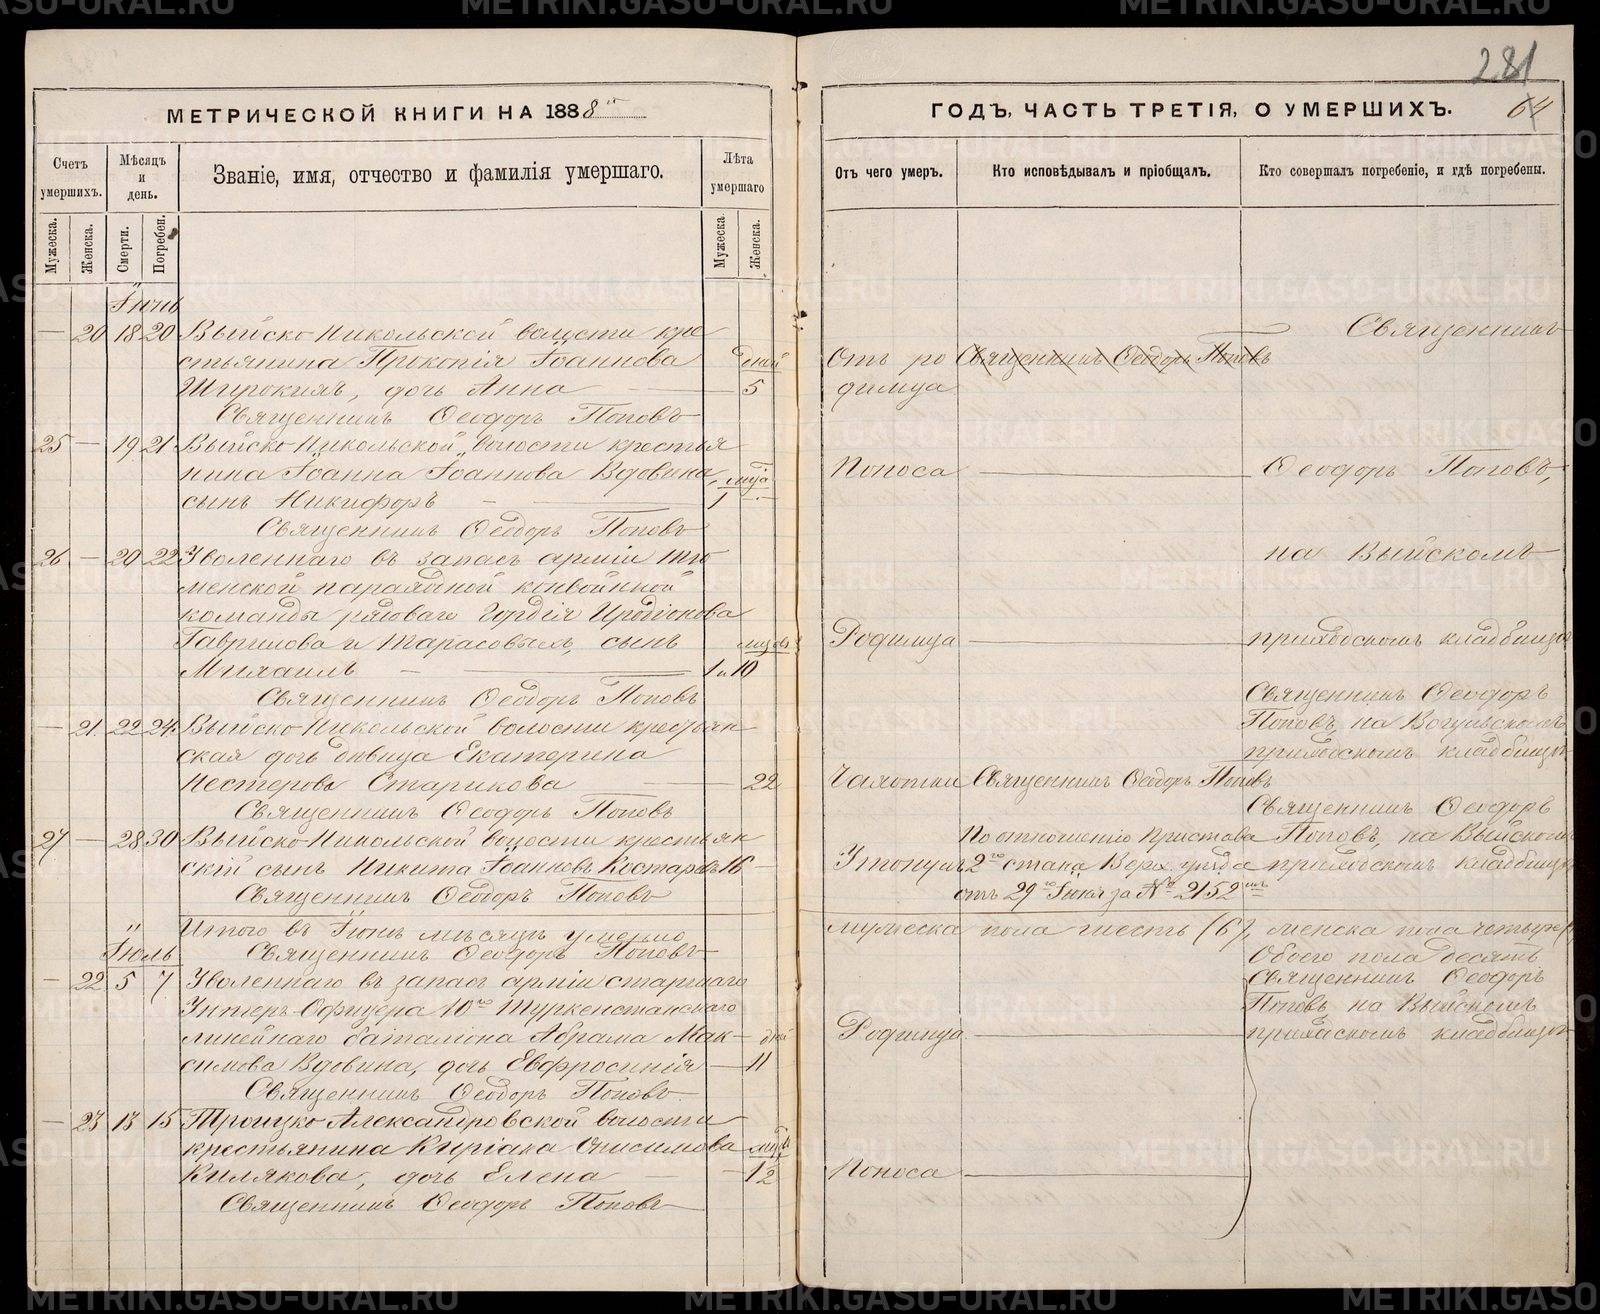 281
МЕТРИЧЕСКОЙ КНИГИ НА 1888й
ГОДЪ, ЧАСТЬ ТРЕТІЯ, О УМЕРШИХЪ.
64
Счетъ умершихъ.
Мѣсяцъ и день.
Званіе, имя, отчество и фамилія умершаго.
Лѣта умершаго
Отъ чего умеръ.
Кто исповѣдывалъ и пріобщалъ.
Кто совершалъ погребеніе, и гдѣ погребены.
Мужеска.
Женска.
Смерти.
Погребен.
Мужеска
Женска.
Іюнь
— 20 18 20 Выйско-Никольской волости кре
стьянина Прокопія Іоаннова дней
Широкихъ, дочь Анна — 5
Священникъ Ѳеодоръ Поповъ
25 — 19 21 Выйско-Никольской волости крестья
нина Іоанна Іоаннова Вдовина,
сынъ Никифоръ — 1
Священникъ Ѳеодоръ Поповъ
26 — 20 22 Уволеннаго въ запасъ арміи Тю
менской конвойнной
команды рядоваго Гордія Иродіонова
Гаврилова и Тарасовыхъ, сынъ
Михаилъ — 1 и 10
Священникъ Ѳеодоръ Поповъ
— 21 22 24 Выйско-Никольской волости крестьян
ская дочь дѣвица Екатерина
Нестерова Старикова — 22
Священникъ Ѳеодоръ Поповъ
27 — 28 30 Выйско-Никольской волости крестьян
скій сынъ Никита Іоанновъ Костаревъ 16 —
Священникъ Ѳеодоръ Поповъ
Итого въ Іюнѣ мѣсяцѣ умерло
Священникъ Ѳеодоръ Поповъ
Іюль
— 22 5 7 Уволеннаго въ запасъ арміи старшаго
Унтеръ-Офицера 10го Туркестанскаго
линейнаго баталіона Абрама Мак- дней
симова Вдовина, дочь Евфросинія — 11
Священникъ Ѳеодоръ Поповъ
— 23 13 15 Троицко-Александровской волости
крестьянина Киріака Онисимова
Килякова, дочь Елена — 1/2
Священникъ Ѳеодоръ Поповъ
Священникъ
Отъ ро Священникъ Ѳеодоръ Поповъ
димца
Поноса — Ѳеодоръ Поповъ,
на Выйскомъ
Родимца — приходскомъ кладбищѣ
Священникъ Ѳеодоръ
Поповъ, на Вогульскомъ
приходскомъ кладбищѣ
Чахотки Священникъ Ѳеодоръ Поповъ
Священникъ Ѳеодоръ
По отношенію Пристава Поповъ, на Выйскомъ
Утонулъ 2го стана Верх. уѣзда приходскомъ кладбищѣ
отъ 29го Іюня за № 2152
мужеска пола шесть (6), женска пола четыре (4)
Обоего пола десять
Священникъ Ѳеодоръ
Поповъ на Выйскомъ
Родимца — приходскомъ кладбищѣ
Поноса —
METRIKI.GASO-URAL.RU